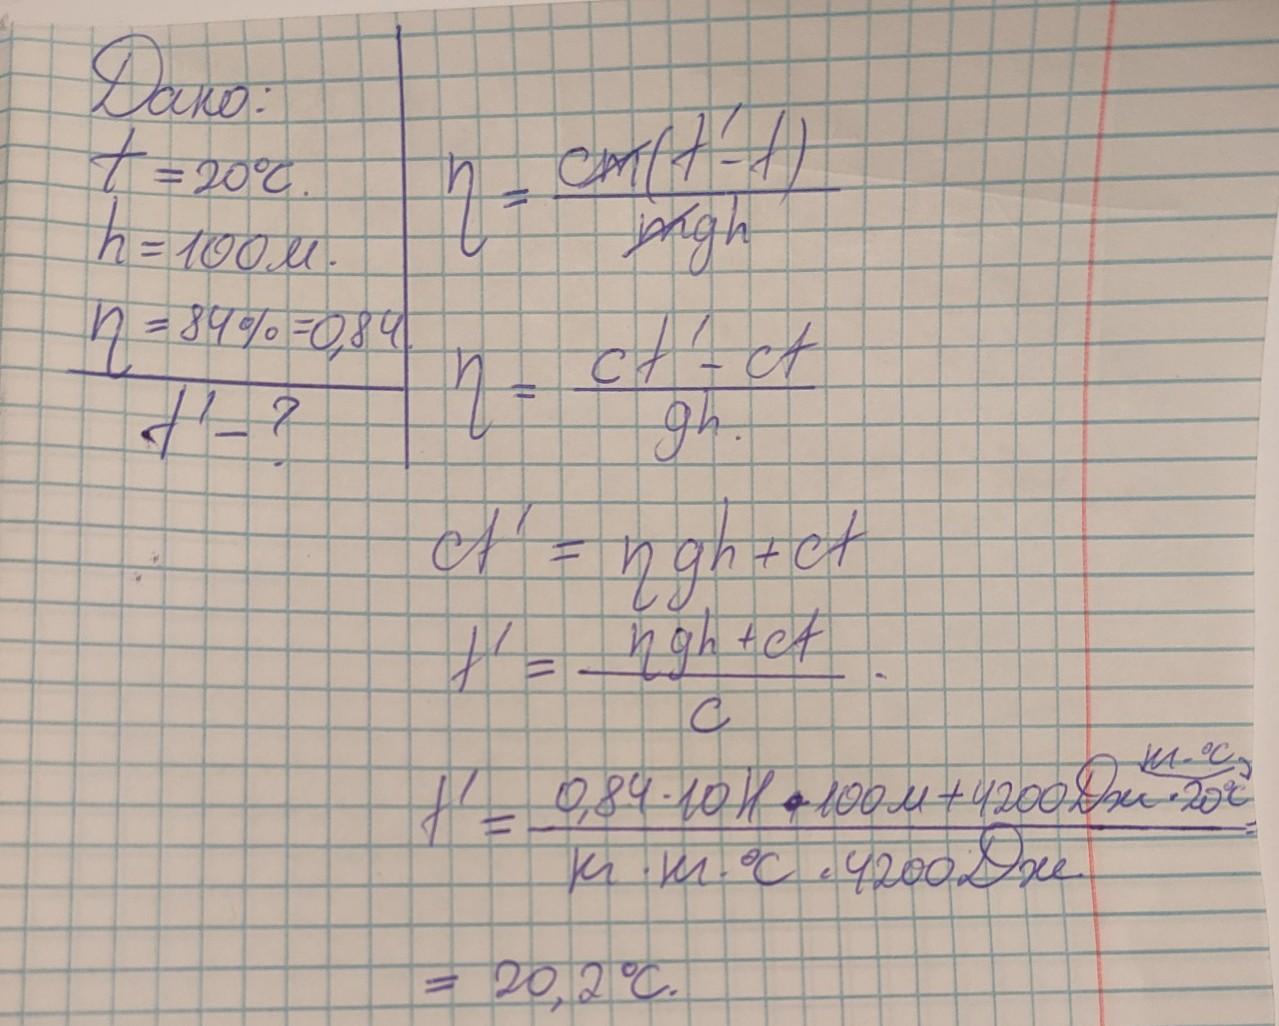 Дано:
t = 20°C.
h = 100м.
η = 84% = 0,84.
t' - ?
η = cm(t' - t) / mgh
η = ct' - ct / gh.
ct' = ηgh + ct
t' = ηgh + ct / c .
t' = 0,84 · 10Н · 100м + 4200Дж · 20°C / кг · кг · °C · 4200Дж =
кг · °C
= 20,2°C.